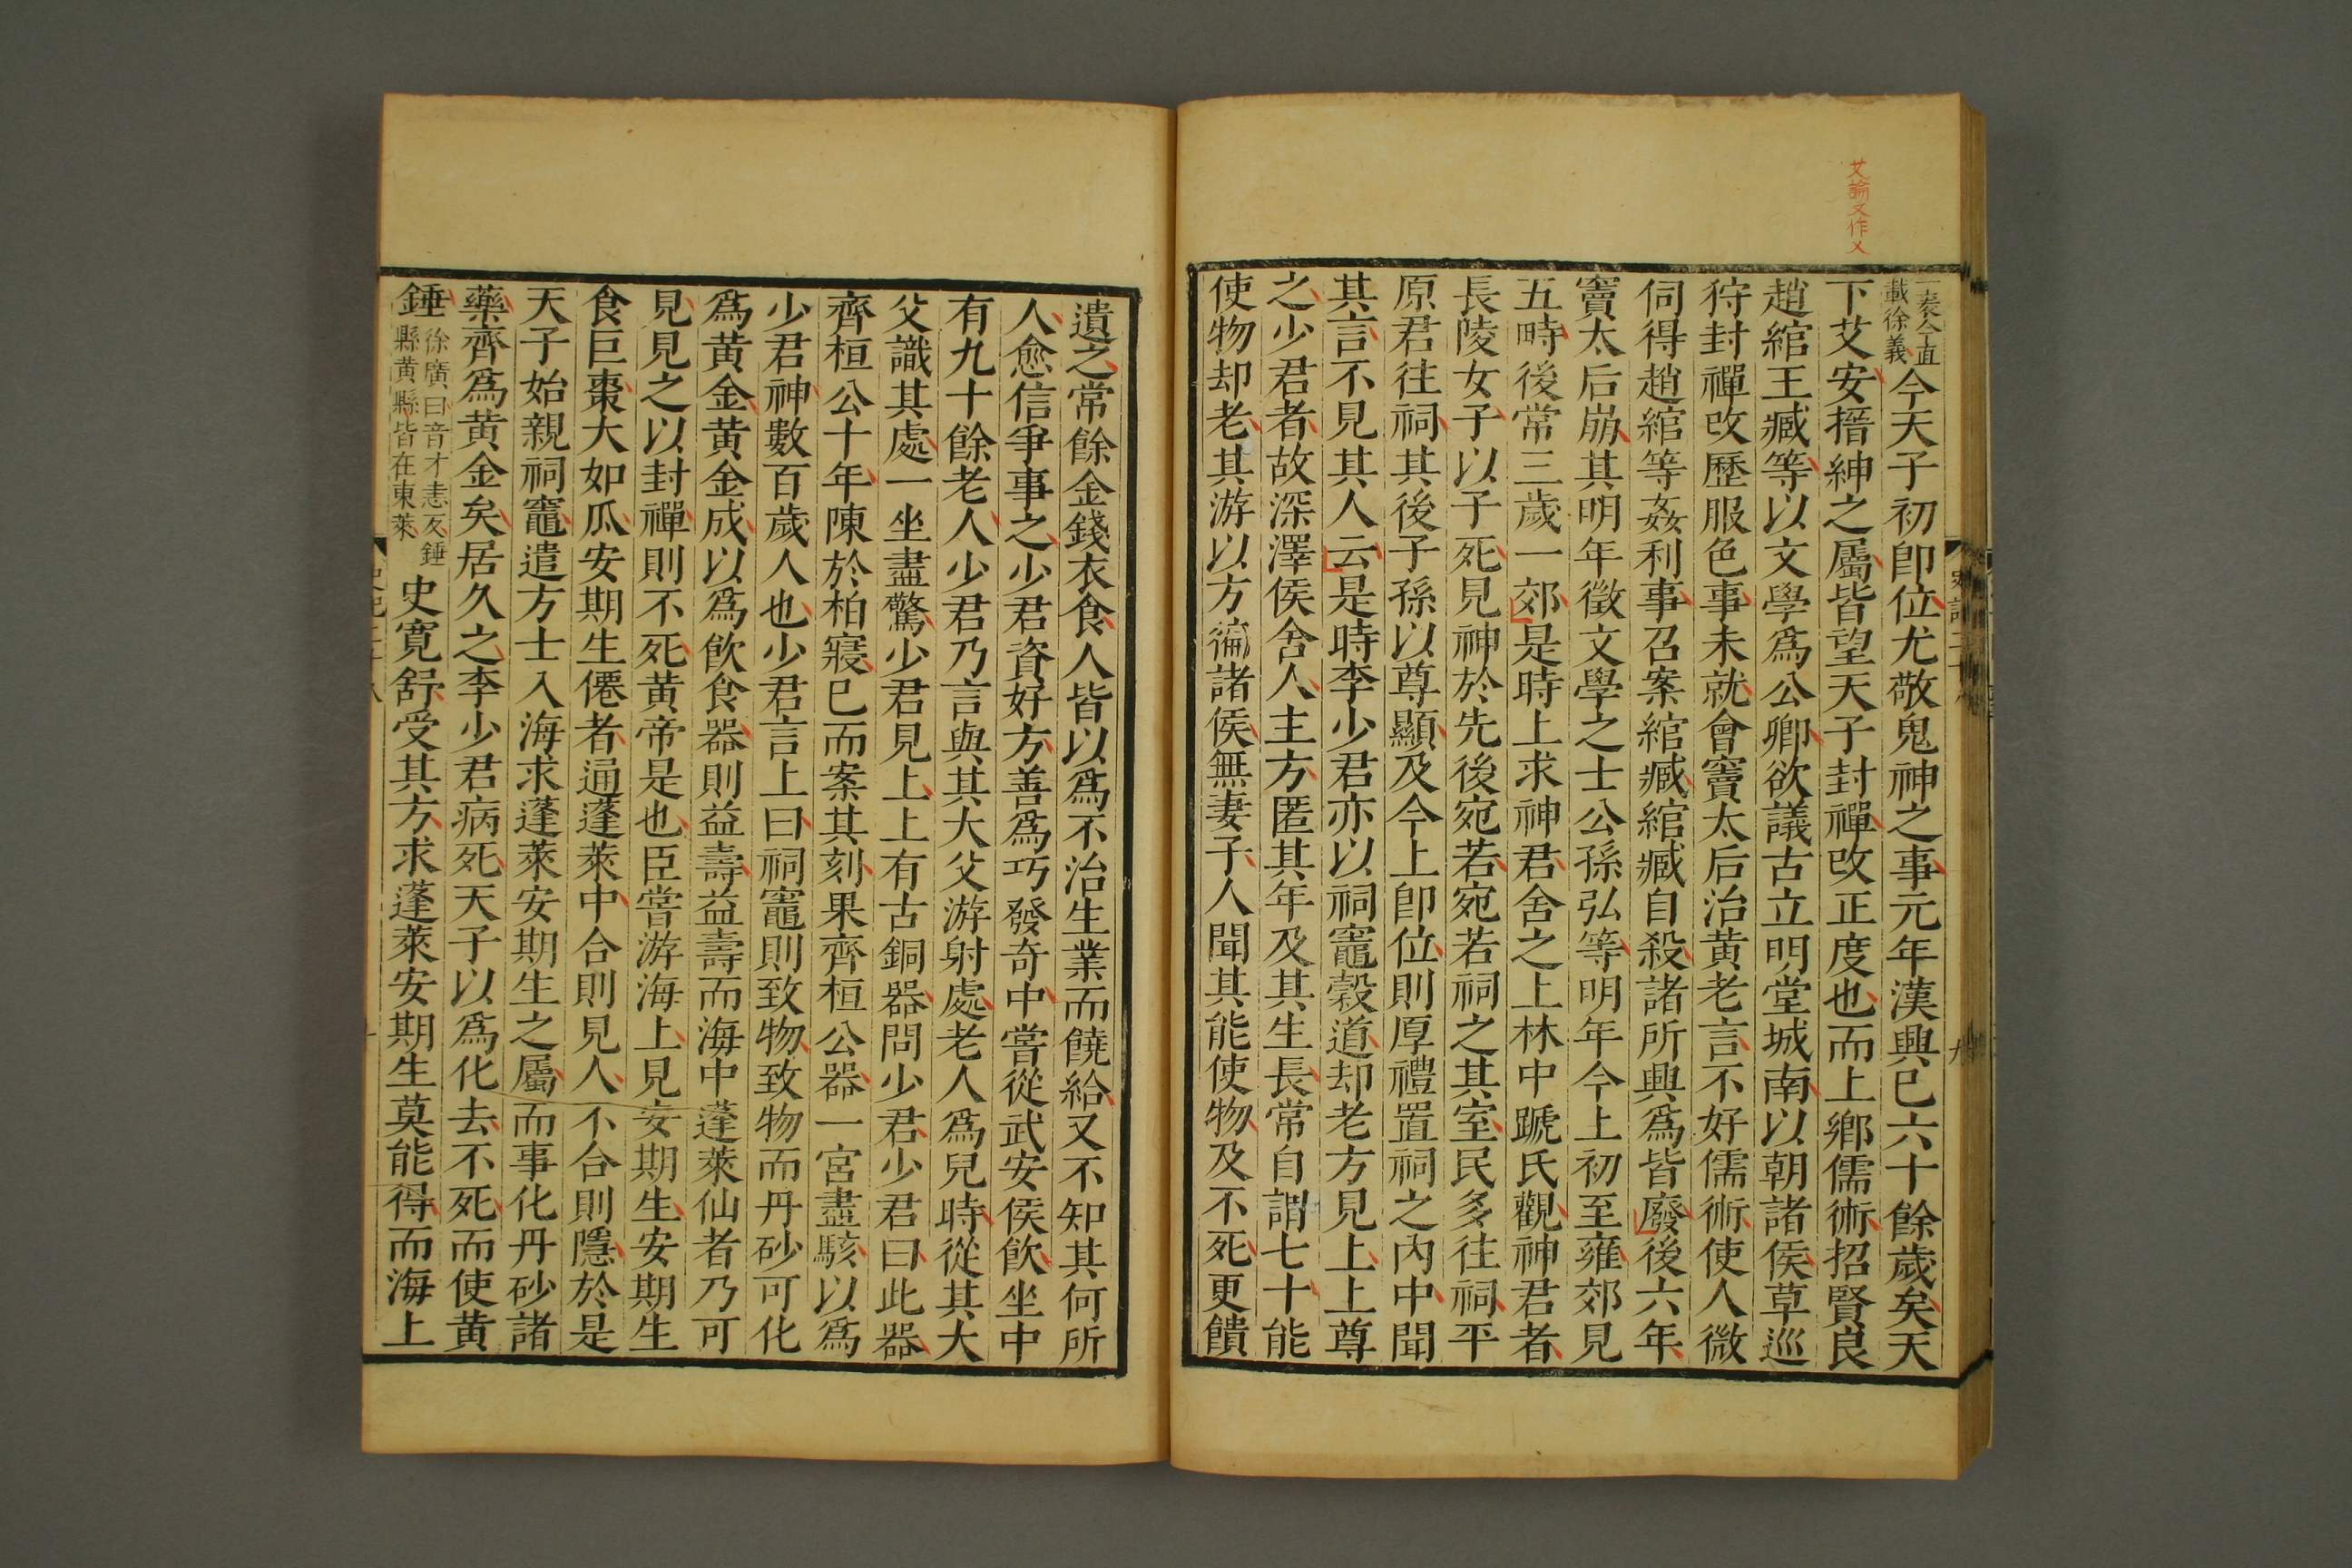 艾論文作乂
載徐義今天子初即位尤敬鬼神之事元年漢興已六十餘歲矣天
下艾安搢紳之屬皆望天子封禪改正度也而上鄉儒術招賢良
趙綰王臧等以文學爲公卿欲議古立明堂城南以朝諸侯草巡
狩封禪改歷服色事未就會竇太后治黃老言不好儒術使人微
伺得趙綰等姦利事召案綰臧綰臧自殺諸所興爲皆廢後六年
竇太后崩其明年徵文學之士公孫弘等明年今上初至雍郊見
五畤後常三歲一郊是時上求神君舍之上林中蹏氏觀神君者
長陵女子以子死見神於先後宛若宛若祠之其室民多往祠平
原君往祠其後子孫以尊顯及今上即位則厚禮置祠之內中聞
其言不見其人云是時李少君亦以祠竈穀道却老方見上上尊
之少君者故深澤侯舍人主方匿其年及其生長常自謂七十能
使物却老其游以方徧諸侯無妻子人聞其能使物及不死更饋
遺之常餘金錢衣食人皆以爲不治生業而饒給又不知其何所
人愈信爭事之少君資好方善爲巧發奇中嘗從武安侯飲坐中
有九十餘老人少君乃言與其大父游射處老人爲兒時從其大
父識其處一坐盡驚少君見上上有古銅器問少君少君曰此器
齊桓公十年陳於柏寢已而案其刻果齊桓公器一宮盡駭以爲
少君神數百歲人也少君言上曰祠竈則致物致物而丹砂可化
爲黃金黃金成以爲飲食器則益壽益壽而海中蓬萊仙者乃可
見見之以封禪則不死黃帝是也臣嘗游海上見安期生安期生
食巨棗大如瓜安期生僊者通蓬萊中合則見人不合則隱於是
天子始親祠竈遣方士入海求蓬萊安期生之屬而事化丹砂諸
藥齊爲黃金矣居久之李少君病死天子以爲化去不死而使黃
錘徐廣曰音才恚反錘縣黃縣皆在東萊史寬舒受其方求蓬萊安期生莫能得而海上